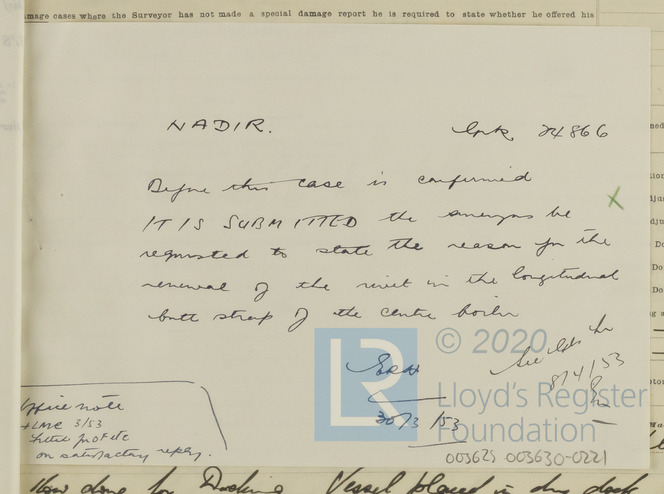 amage cases where the Surveyor has not made a special damage report he is required to state whether he offered his
NADIR.
Cork 24866
Before this case is confirmed
IT IS SUBMITTED the surveyors be
requested to state the reason for the
renewal of the rivet in the longitudinal
butt strap of the centre boiler
30/3/53
8/4/53
Office note
+LMC 3/53
on satisfactory reply.
© 2020
LR
Lloyd's Register
Foundation
003625 003630-0221
Now done for Docking Vessel placed in dry dock